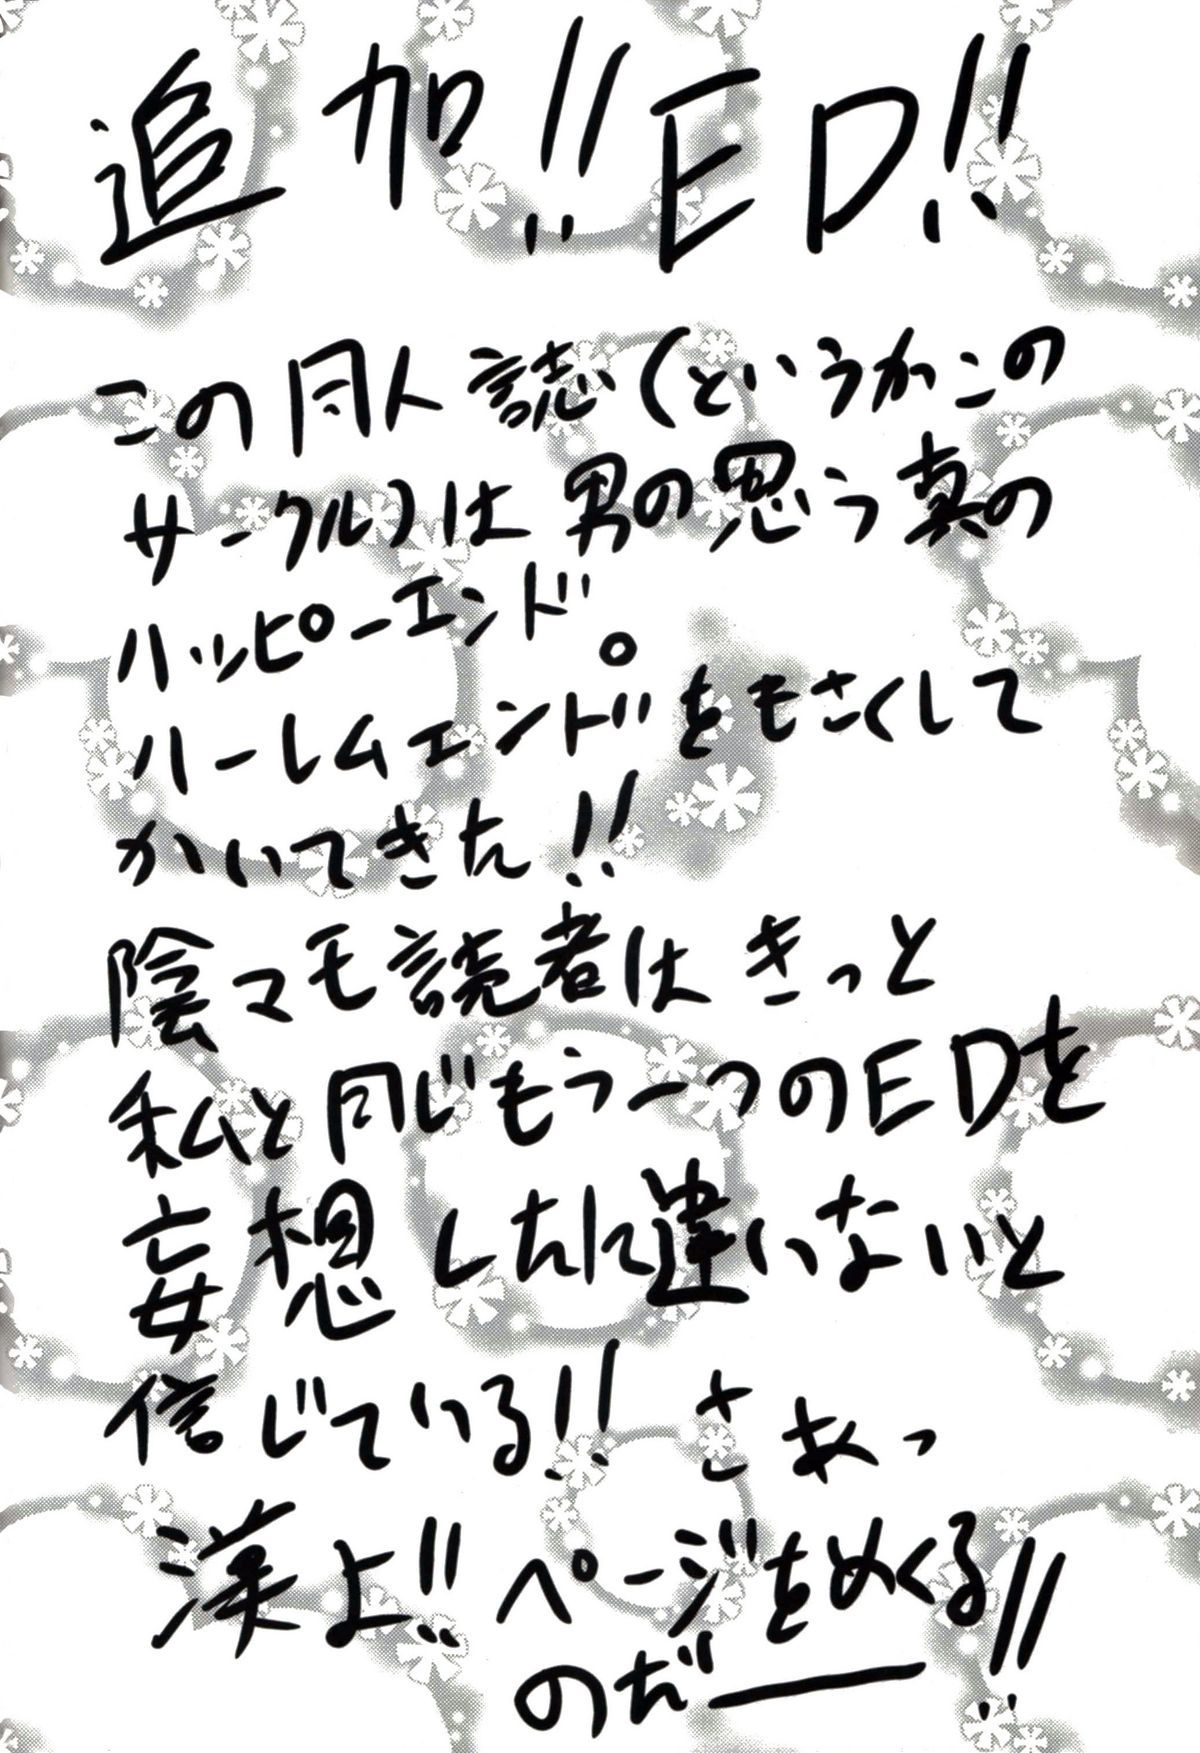 追加!!ED!!
この同人誌(というかこの
サークル)は男の思う真の
ハッピーエンド。
ハーレムエンドをもさくして
かいてきた!!
陰マモ読者はきっと
私と同じもう一つのEDを
妄想したに違いないと
信じている!! さあっ
漢よ!! ページをめくる
のだー!!